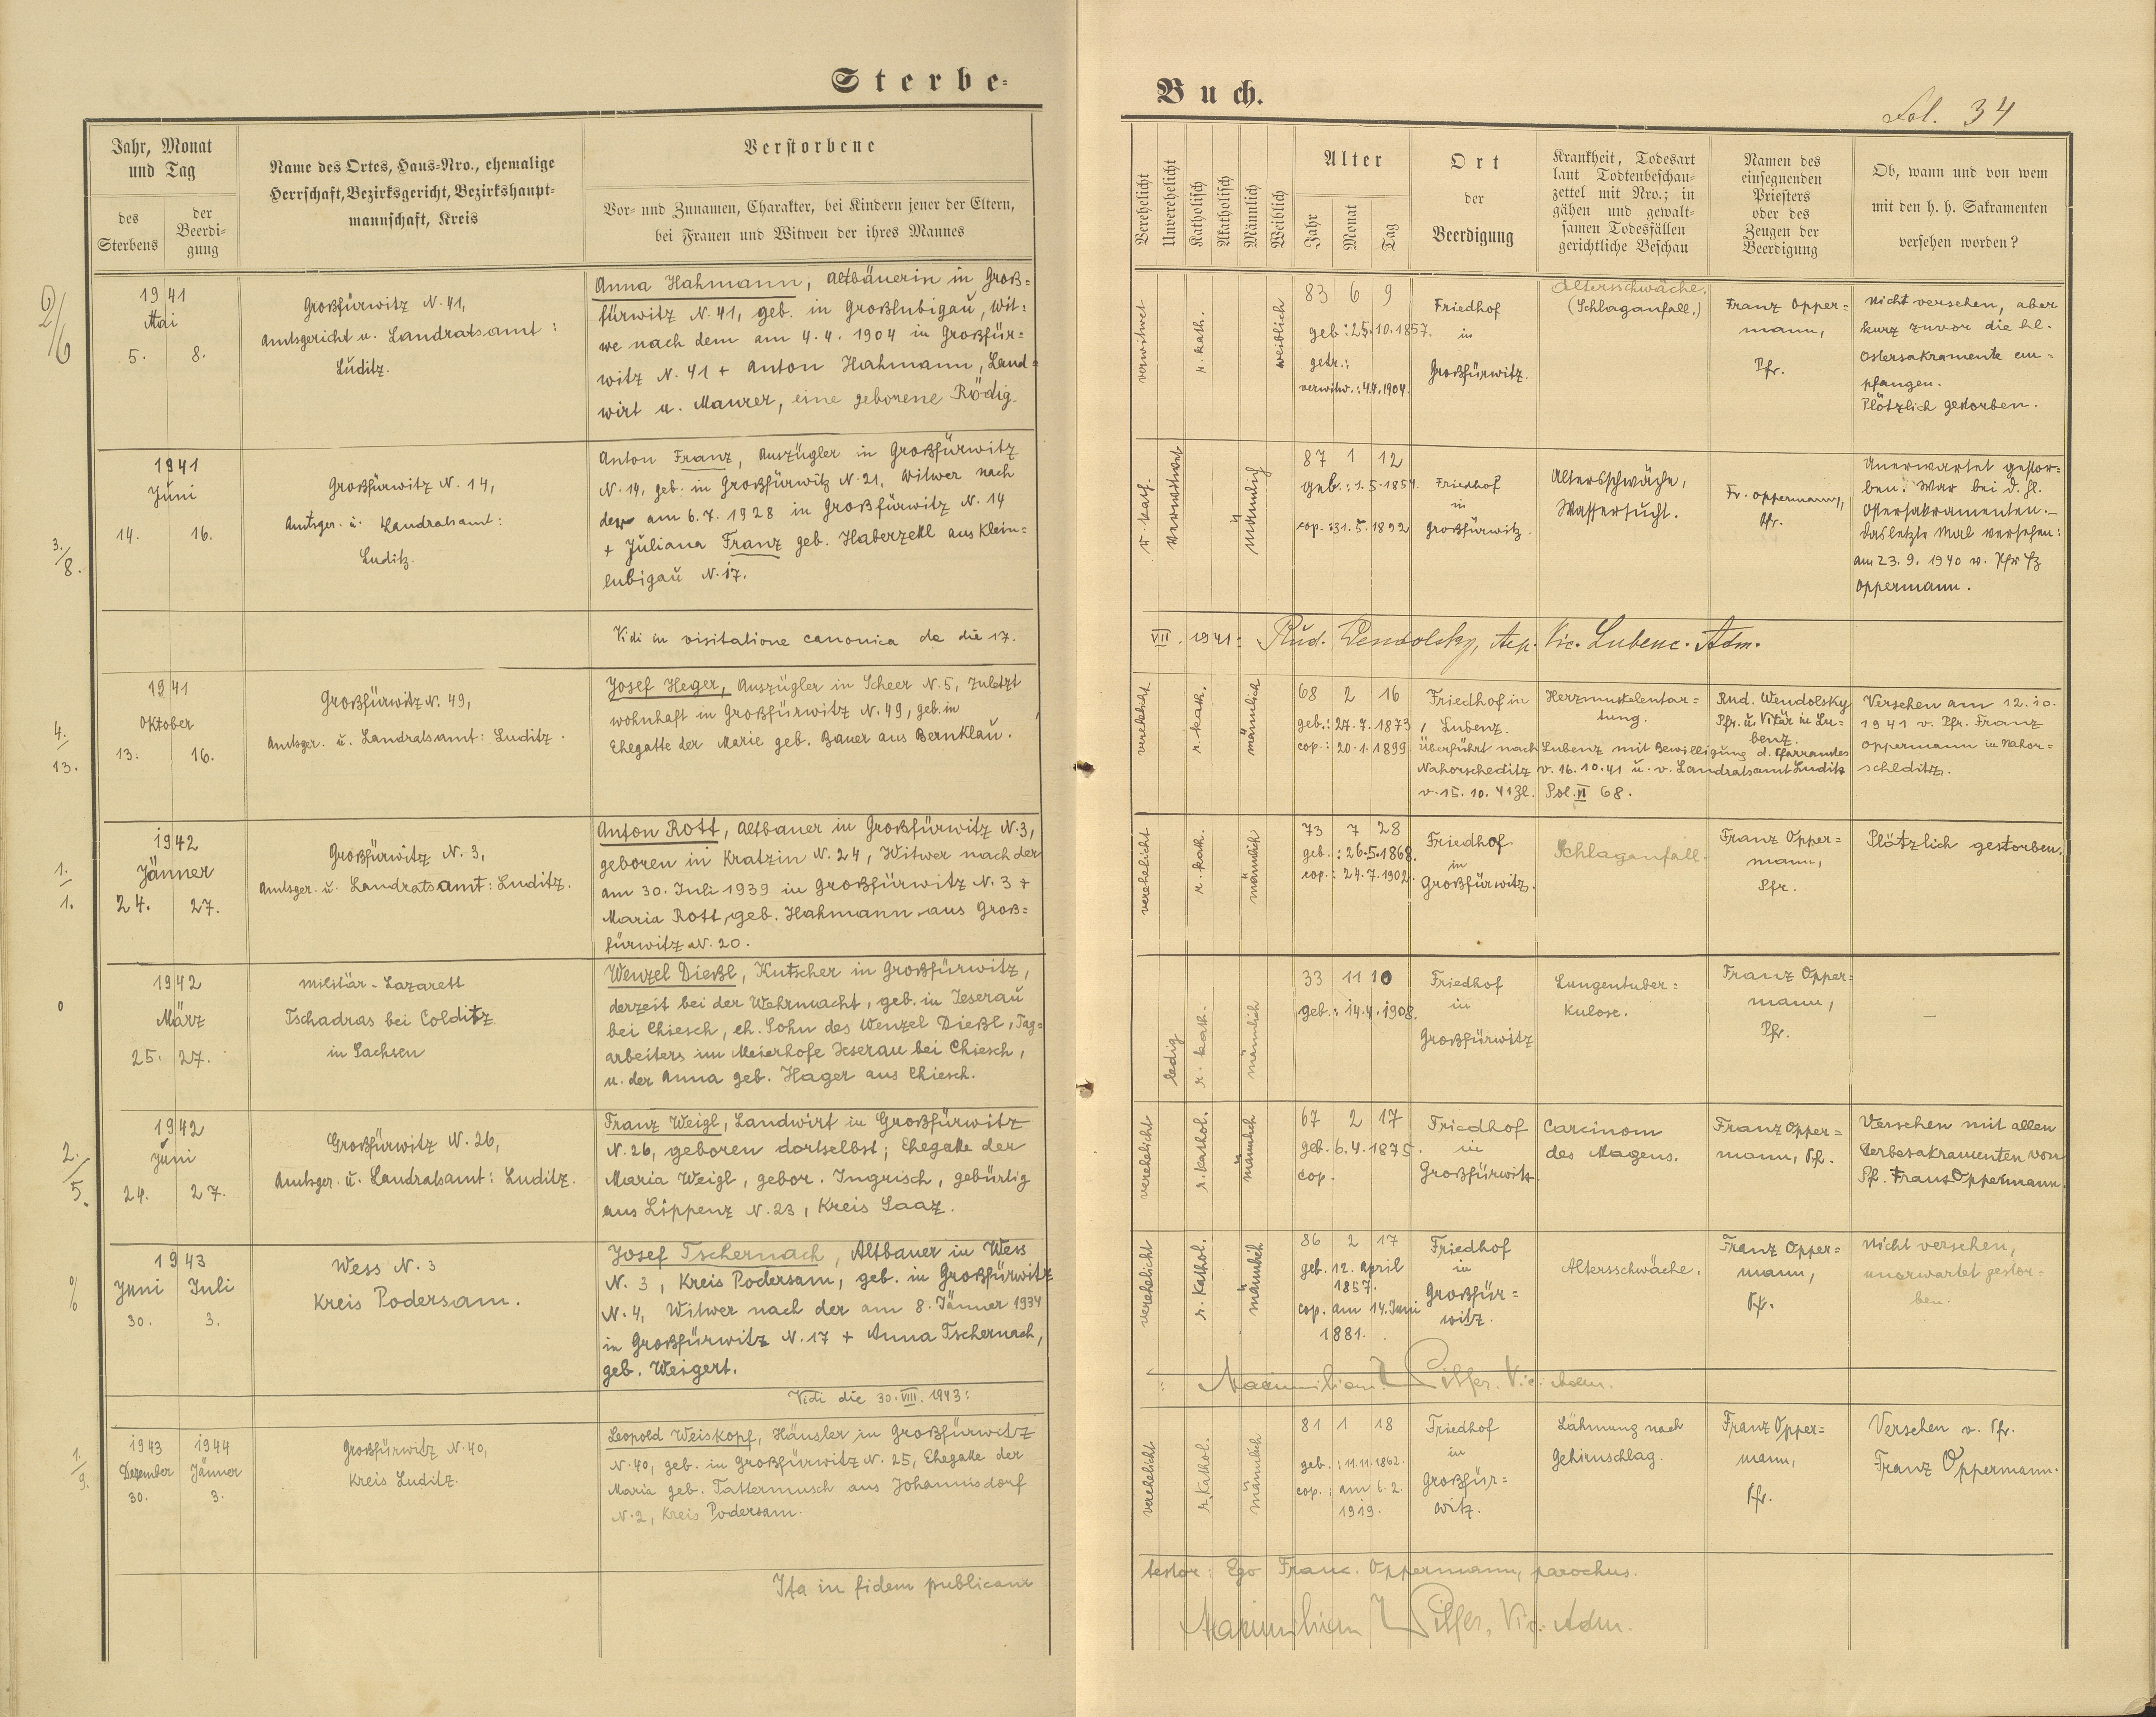 Sterbe-
Buch.
Fol. 34
Jahr, Monat
und Tag
des
Sterbens
der
Beerdi-
gung
Name des Ortes, Haus-Nro., ehemalige
Herrschaft, Bezirksgericht, Bezirkshaupt-
mannschaft, Kreis
Verstorbene
Vor- und Zunamen, Charakter, bei Kindern jener der Eltern,
bei Frauen und Witwen der ihres Mannes
Verehelicht
Unverehelicht
Katholisch
Akatholisch
Männlich
Weiblich
Alter
Jahr
Monat
Tag
Ort
der
Beerdigung
Krankheit, Todesart
laut Todtenbeschau-
zettel mit Nro.; in
gähen und gewalt-
samen Todesfällen
gerichtliche Beschau
Namen des
einsegnenden
Priesters
oder des
Zeugen der
Beerdigung
Ob, wann und von wem
mit den h. h. Sakramenten
versehen worden?
2/6
1941
Mai
5. 8.
Großfürwitz N. 41,
Amtsgericht u. Landratsamt:
Luditz.
Anna Hahmann, Altbäuerin in Groß=
fürwitz N. 41, geb. in Großlubigau, Wit:
we nach dem am 4. 4. 1904 in Großfür=
witz N. 41 + Anton Hahmann, Land=
wirt u. Maurer, eine geborene Rödig.
verwitwet
r. kath.
weiblich
83 6 9
geb: 25.10.1857.
getr.:
verwitw.: 4.4.1904.
Friedhof
in
Großfürwitz.
Altersschwäche.
(Schlaganfall.)
Franz Opper=
mann,
Pfr.
Nicht versehen, aber
kurz zuvor die hl.
Ostersakramente em=
pfangen.
Plötzlich gestorben.
3./8.
1941
Juni
14. 16.
Großfürwitz N. 14,
Amtsger. u. Landratsamt:
Luditz.
Anton Franz, Auszügler in Großfürwitz
N. 14, geb. in Großfürwitz N. 21, Witwer nach
der am 6. 7. 1928 in Großfürwitz N. 14
+ Juliana Franz geb. Haberzettl aus Klein=
lubigau N. 17.
r. kath.
Verwitwet
männlich
87 1 12
geb.: 1.5.1854.
cop.: 31.5.1892
Friedhof
in
Großfürwitz.
Altersschwäche,
Wassersucht.
Fr. Oppermann,
Pfr.
Unerwartet gestor=
ben. War bei d. hl.
Ostersakramenten.-
das letzte Mal versehen:
am 23. 9. 1940 v. Pfr Fz
Oppermann.
Vidi in visitatione canonica de die 17.
VII. 1941: Rud. Wendolsky, Aep. Vic. Lubenc. Adm.
4./13.
1941
Oktober
13. 16.
Großfürwitz N. 49,
Amtsger. u. Landratsamt: Luditz.
Josef Heger, Auszügler in Scheer N. 5, zuletzt
wohnhaft in Großfürwitz N. 49, geb. in
Ehegatte der Marie geb. Bauer aus Bernklau.
verehelicht
r. kath.
männlich
68 2 16
geb.: 27.7.1873
cop.: 20.1.1899.
Friedhof in
Lubenz.
Herzmuskelentar=
tung.
Rud. Wendolsky
Pfr. u. Vikär in Lu=
benz.
Überführt nach Lubenz mit Bewilligung d. Pfarramtes
Nahorscheditz v. 16.10.41 u. v. Landratsamt Luditz
v. 15. 10. 41 Zl. Pol. VI 68.
Versehen am 12.10.
1941 v. Pfr. Franz
Oppermann in Nahor=
scheditz.
1./1.
1942
Jänner
24. 27.
Großfürwitz N. 3,
Amtsger. u. Landratsamt: Luditz.
Anton Rott, Altbauer in Großfürwitz N. 3,
geboren in Kratzin N. 24, Witwer nach der
am 30. Juli 1939 in Großfürwitz N. 3 +
Maria Rott, geb. Hahmann aus Groß=
fürwitz N. 20.
verehelicht
r. kath.
männlich
73 7 28
geb.: 26.5.1868.
cop.: 24.7.1902.
Friedhof
in
Großfürwitz.
Schlaganfall.
Franz Opper=
mann,
Pfr.
Plötzlich gestorben.
0
1942
März
25. 27.
Militär-Lazarett
Tschadras bei Colditz
in Sachsen
Wenzel Dießl, Kutscher in Großfürwitz,
derzeit bei der Wehrmacht, geb. in Jeserau
bei Chiesch, eh. Sohn des Wenzel Dießl, Tag=
arbeiters im Meierhofe Jeserau bei Chiesch,
u. der Anna geb. Hager aus Chiesch.
ledig
r. kath.
männlich
33 11 10
geb.: 14.4.1908.
Friedhof
in
Großfürwitz
Lungentuber=
kulose.
Franz Opper=
mann,
Pfr.
—
2./5.
1942
Juni
24. 27.
Großfürwitz N. 26,
Amtsger. u. Landratsamt: Luditz.
Franz Weigl, Landwirt in Großfürwitz
N. 26, geboren dortselbst; Ehegatte der
Maria Weigl, gebor. Ingrisch, gebürtig
aus Lippenz N. 23, Kreis Saaz.
verehelicht
r. kathol.
männlich
67 2 17
geb. 6.4.1875.
cop.
Friedhof
in
Großfürwitz.
Carcinom
des Magens.
Franz Opper=
mann, Pf.
Versehen mit allen
Sterbesakramenten von
Pf. Franz Oppermann.
%
1943
Juni Juli
30. 3.
Wess N. 3
Kreis Podersam.
Josef Tschernach, Altbauer in Wess
N. 3, Kreis Podersam, geb. in Großfürwitz
N. 4, Witwer nach der am 8. Jänner 1934
in Großfürwitz N. 17 + Anna Tschernach,
geb. Weigert.
verehelicht
r. kathol.
männlich
86 2 17
geb. 12. April
1857.
cop. am 14. Juni
1881.
Friedhof
in
Großfür=
witz.
Altersschwäche.
Franz Opper=
mann,
Pfr.
Nicht versehen,
unerwartet gestor=
ben.
Vidi die 30. VIII. 1943:
Maximilian Wilfer. Vic. Adm.
1./9.
1943 1944
Dezember Jänner
30. 3.
Großfürwitz N. 40,
Kreis Luditz.
Leopold Weiskopf, Häusler in Großfürwitz
N. 40, geb. in Großfürwitz N. 25, Ehegatte der
Maria geb. Tattermusch aus Johannisdorf
N. 2, Kreis Podersam.
verehelicht
r. kathol.
männlich
81 1 18
geb.: 11.11.1862.
cop.: am 6.2.
1919.
Friedhof
in
Großfür=
witz.
Lähmung nach
Gehirnschlag.
Franz Opper=
mann,
Pfr.
Versehen v. Pfr.
Franz Oppermann.
Ita in fidem publicam
testor: Ego Franc. Oppermann, parochus.
Maximilian Wilfer, Vic. Adm.